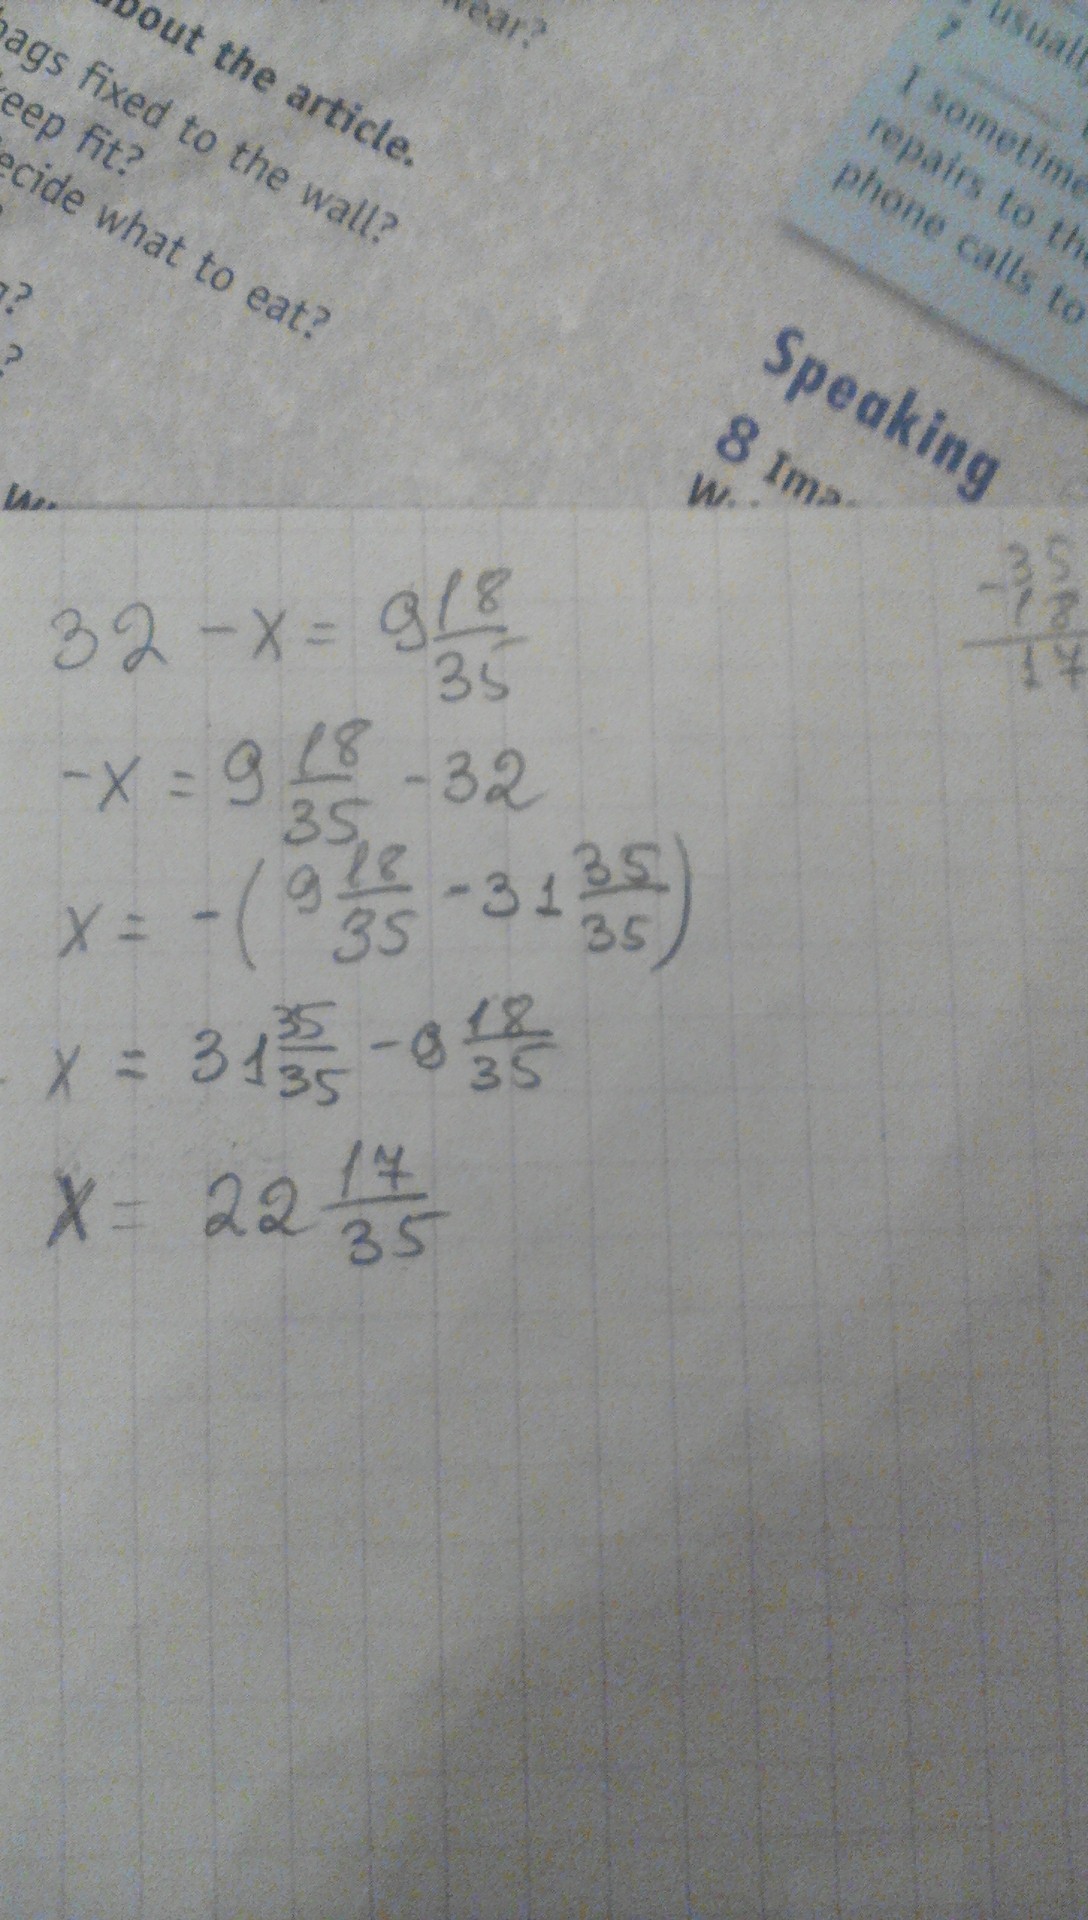 wear?
about the article.
bags fixed to the wall?
keep fit?
decide what to eat?
?
?
usually
?
I sometimes
repairs to the
phone calls to
Speaking
8 Ima
32 - x = 9 18/35
-x = 9 18/35 - 32
x = -(9 18/35 - 31 35/35)
x = 31 35/35 - 9 18/35
x = 22 17/35
35
-18
17